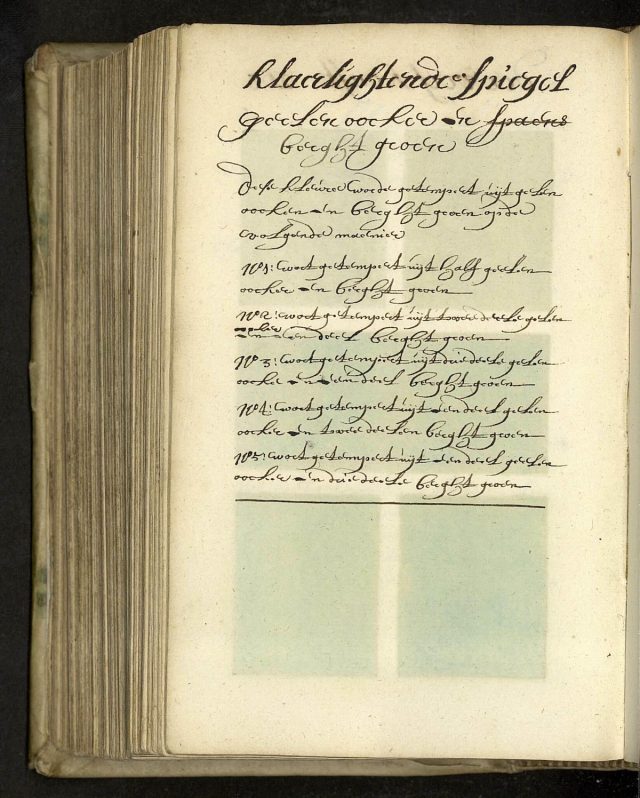 klaerlightende spiegel
geelen oocker en spaens
berght groen
Dese kleure worde getempert uijt gelen
oocker en berght groen op de
volgende manier
No 1: wort getempert uijt half geelen
oocker en berght groen
No 2: wort getempert uijt twee deele gelen
oocker
en een deel berght groen
No 3: wort getempert uijt drie deele gelen
oocker en een deel berght groen
No 4: wort getempert uijt een deel gelen
oocker en twee deelen berght groen
No 5: wort getempert uijt een deel geelen
oocker en drie deele berght groen